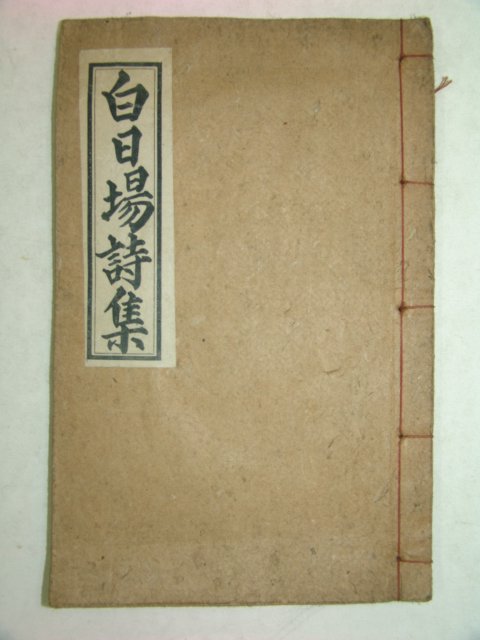 白日場詩集